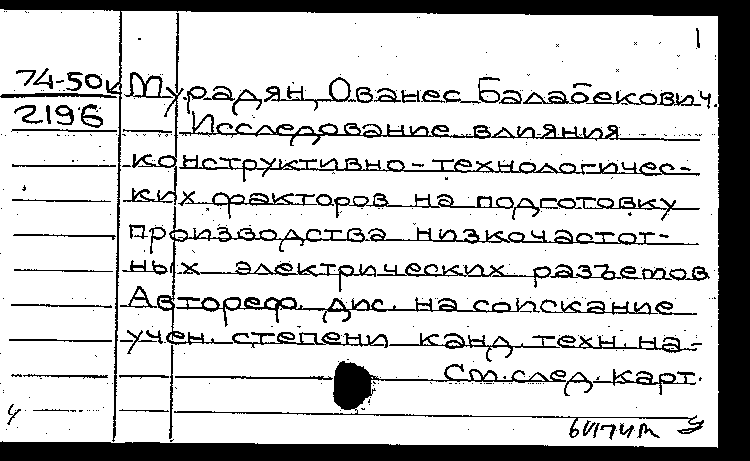 1
74-50к Мурадян, Ованес Балабекович.
2196 Исследование влияния
конструктивно-технологичес-
ких факторов на подготовку
производства низкочастот-
ных электрических разъемов
Автореф. дис. на соискание
учен. степени канд. техн. на-
См. след. карт.